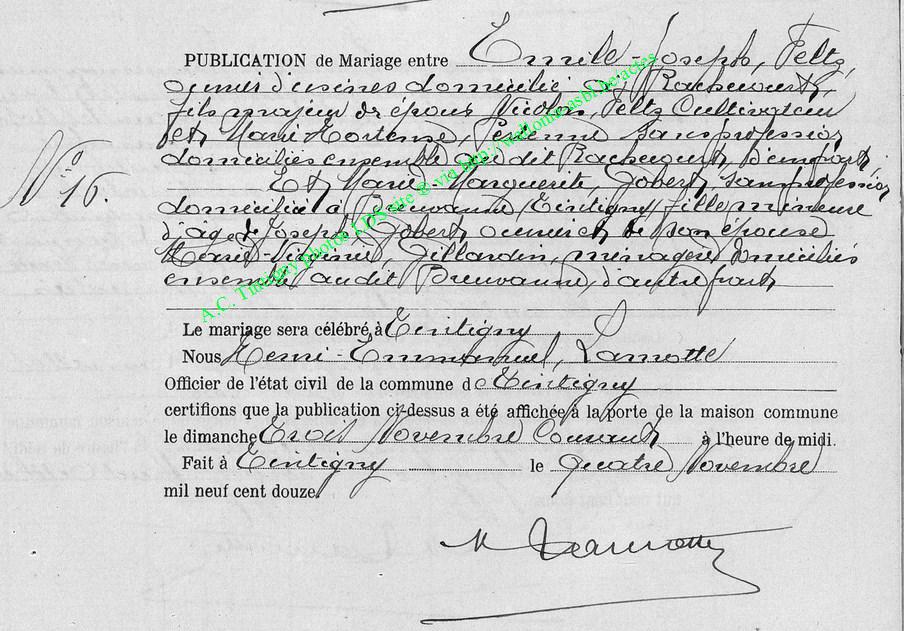 PUBLICATION de Mariage entre Emile-Joseph, Feltz,
ouvrier d'usines domicilié à Rachecourt,
fils majeur de époux Feltz Cultivateur
et Marie Hortense, sans profession
domiciliés ensemble au dit Rachecourt, d'une part
N° 16.
Et Marie Marguerite, Gobert, sans profession
domiciliée à Breuvanne (Tintigny) fille mineure
d'âge de Joseph, Gobert ouvrier et de son épouse
Marie-Virginie, Gillardin, ménagère domiciliés
ensemble audit Breuvanne, d'autre part
Le mariage sera célébré à Tintigny
Nous Henri-Emmanuel, Lamotte
Officier de l'état civil de la commune de Tintigny
certifions que la publication ci-dessus a été affichée à la porte de la maison commune
le dimanche Trois Novembre Courant à l'heure de midi.
Fait à Tintigny le quatre Novembre
mil neuf cent douze
H Lamotte
A.C. Tintigny photos LDS site @ via http://wallonia.asbl.be/actes